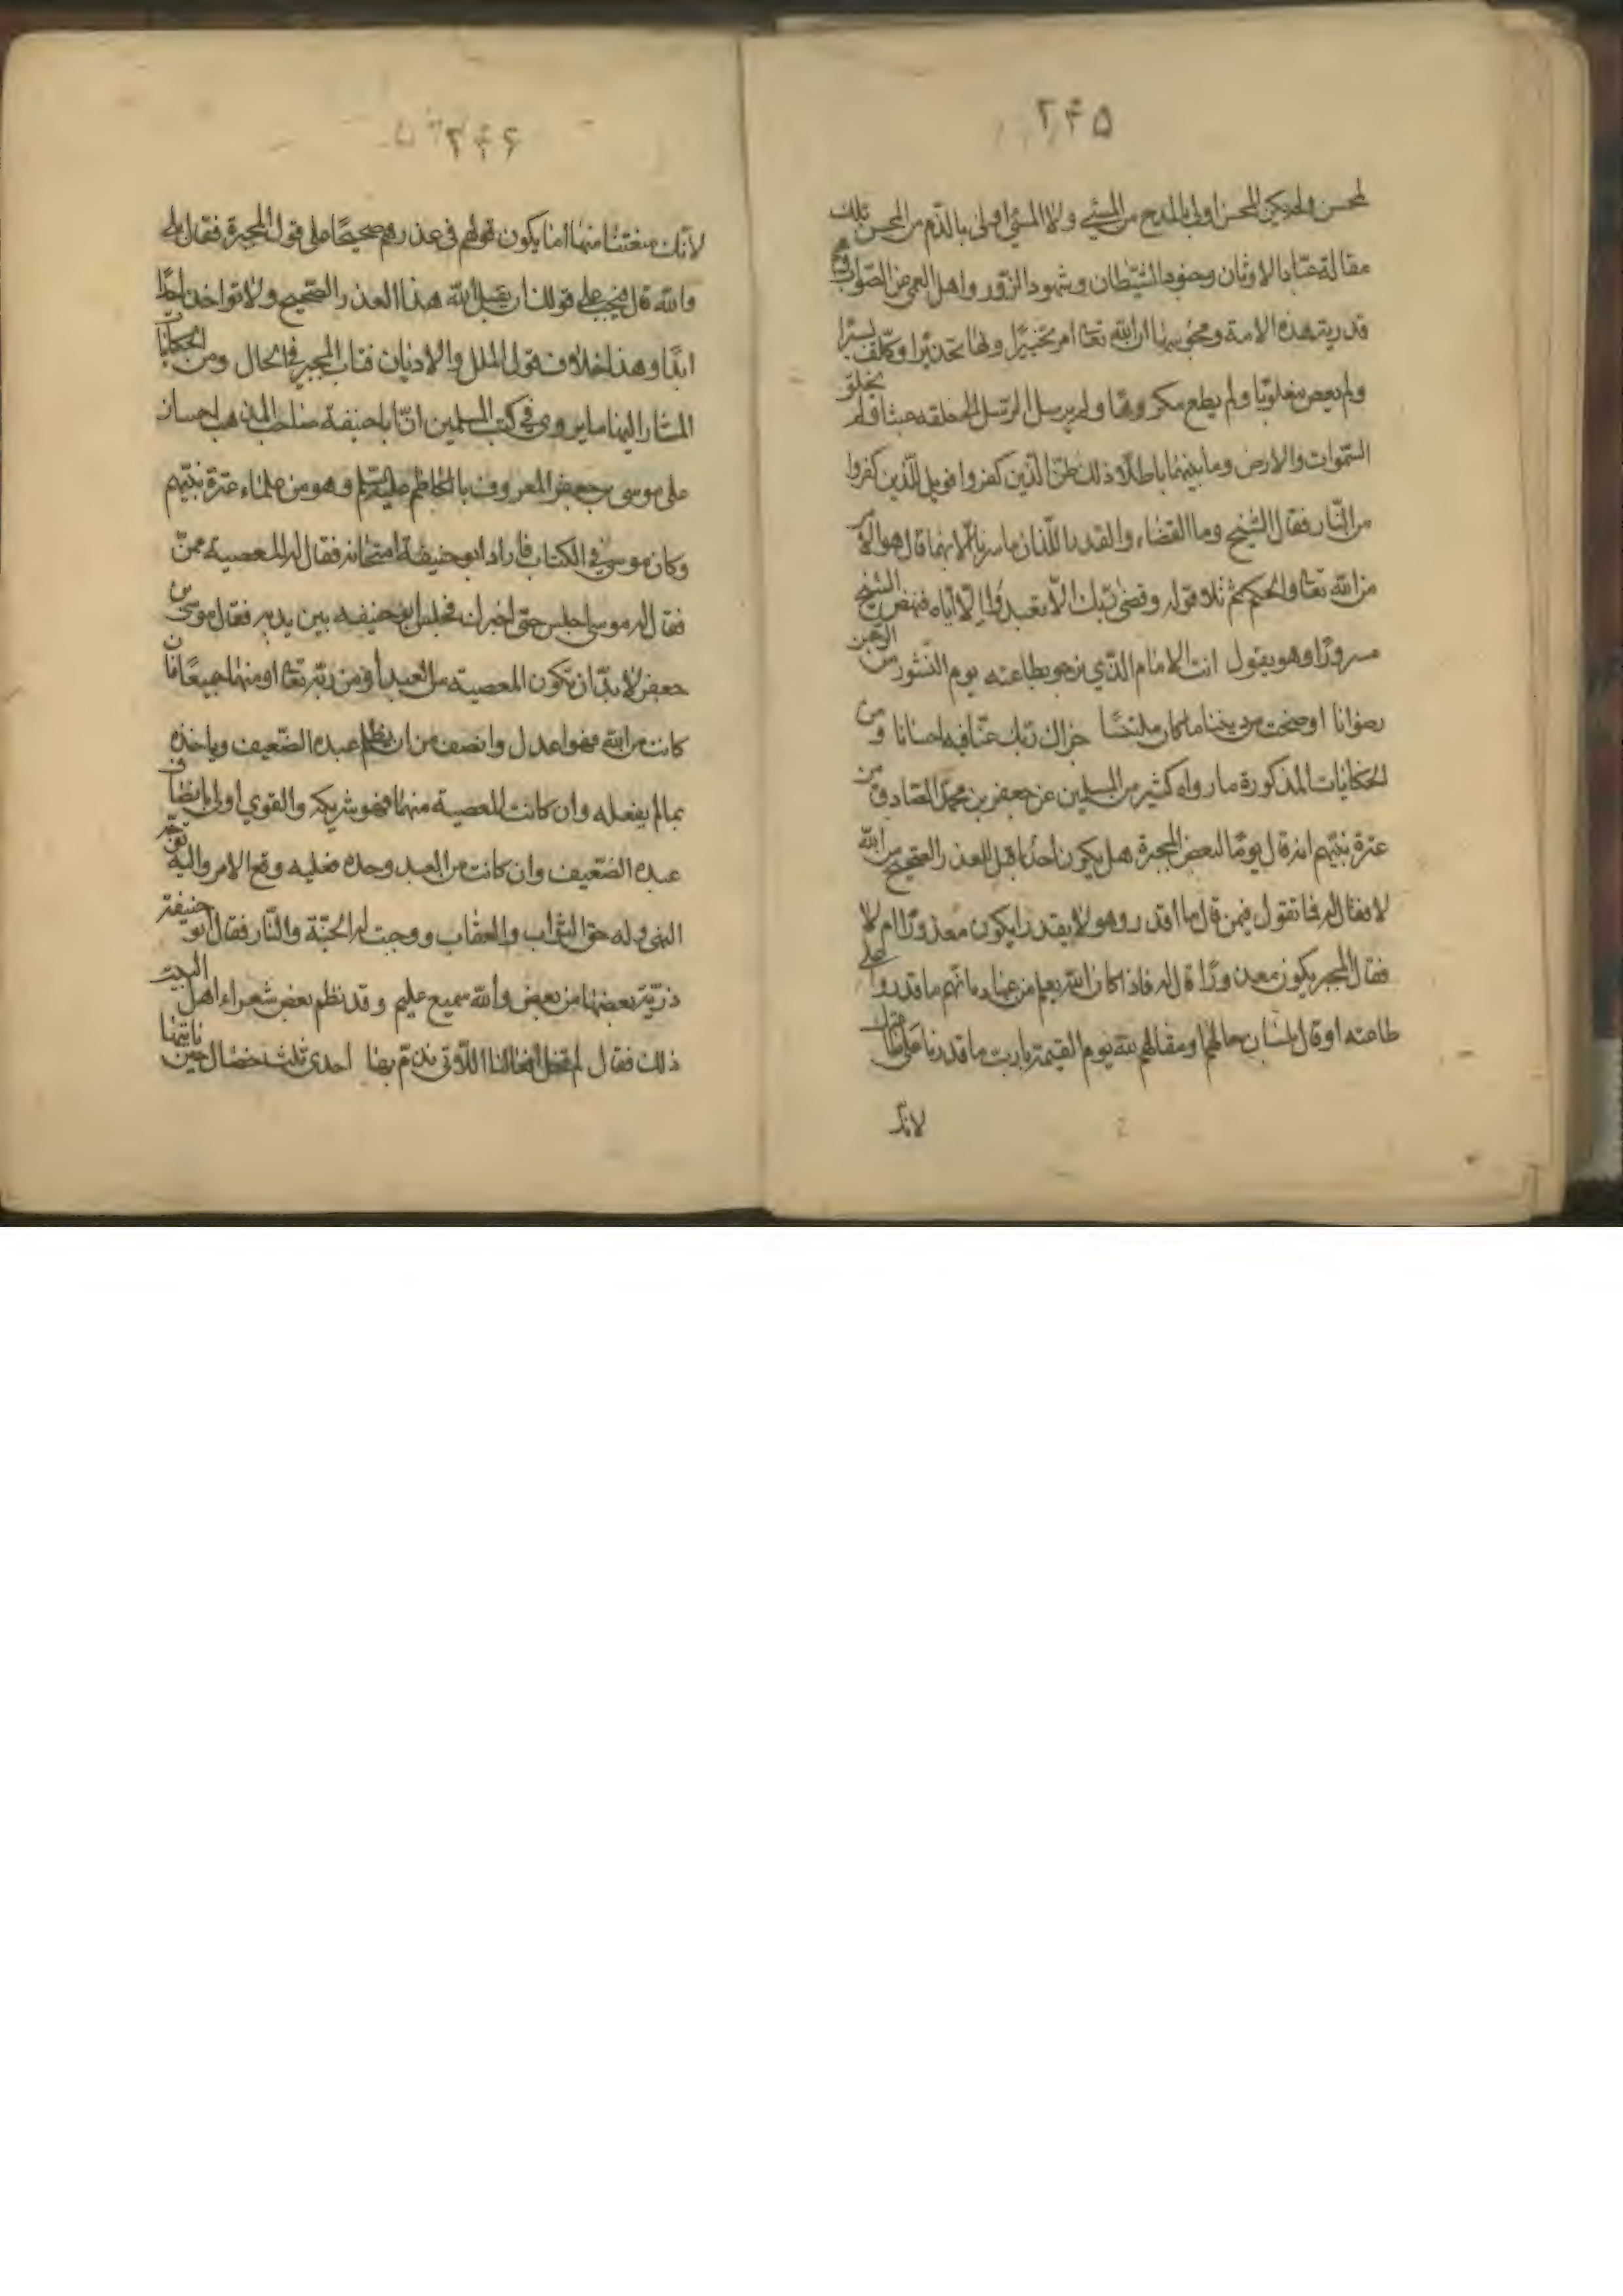 ۲۴۵
لمحسن ولم يكن المحسن اولى بالمدح من المسئ ولا المسئ اولى بالذم من المحسن تلك
مقالة عبّاد الاوثان وجنود الشيطان وشهود الزور واهل العمى عن الصواب وهم
قدرية هذه الامة ومجوسها ان الله تعا امر تخييرًا ونهى تحذيرًا وكلّف يسيرًا
ولم يعص مغلوبًا ولم يطع مكروهًا ولم يرسل الرسل الى خلقه عبثا ولم يخلق
السموات والارض وما بينهما باطلا ذلك ظن الذين كفروا فويل للذين كفروا
من النار فقال الشيخ وما القضاء والقدر اللذان ما سرنا الا بهما قال هو الامر
من الله تعا والحكم ثم تلا قوله وقضى ربك الا تعبدوا الا اياه فنهض الشيخ
مسرورًا وهو يقول انت الامام الذي نرجو بطاعته يوم النشور من الرحمن
رضوانا اوضحت من ديننا ما كان ملتبسًا جزاك ربك عنا فيه احسانا ومن
الحكايات المذكورة ما رواه كثير من المسلمين عن جعفر بن محمد الصادق من
عترة نبيهم انه قال يومًا لبعض المجبرة هل يكون احد اقبل للعذر الصحيح من الله
لا فقال له فما تقول فيمن قال ما اقدر وهو لا يقدر ايكون معذورًا ام لا
فقال المجبر يكون معذورًا قال له فاذا كان الله يعلم من عباده انهم ما قدروا على
طاعته وقال لسان حالهم او مقالهم لله يوم القيمة يا رب ما قدرنا على طاعتك
لانك
۲۴۶
لانك منعتنا منها اما يكون قولهم في عذرهم صحيحًا على قول المجبرة فقال بلى
والله قال فيجب على قولك ان يقبل الله هذا العذر الصحيح ولا تواخذ احدًا
ابدًا وهذا خلاف قول الملل والاديان فتاب المجبر في الحال ومن الحكايات
المشار اليها ما يروى في كتب المسلمين ان ابا حنيفة صاحب المذهب اجتاز
على موسى بن جعفر المعروف بالكاظم عليه السلم وهو من علماء عترة نبيهم
وكان موسى في الكتاب فاراد ابو حنيفة امتحانه فقال له المعصية ممن
فقال له موسى اجلس حتى اخبرك فجلس ابو حنيفه بين يديه فقال موسى بن
جعفر لا بد ان تكون المعصية من العبد أو من ربه تعا او منهما جميعًا فان
كانت من الله فهو اعدل وانصف من ان يظلم عبده الضعيف وياخذه
بما لم يفعله وان كانت المعصية منهما فهو شريكه والقوي اولى بانصاف
عبده الضعيف وان كانت من العبد وحده فعليه وقع الامر واليه توجه
النهى وله حق الثواب والعقاب ووجبت له الجنة والنار فقال ابو حنيفة
ذرّية بعضها من بعض والله سميع عليم وقد نظم بعض شعراء اهل البيت
ذلك فقال لم تخل افعالنا اللاتي نذم بها احدى ثلث خصال حين ناتيها